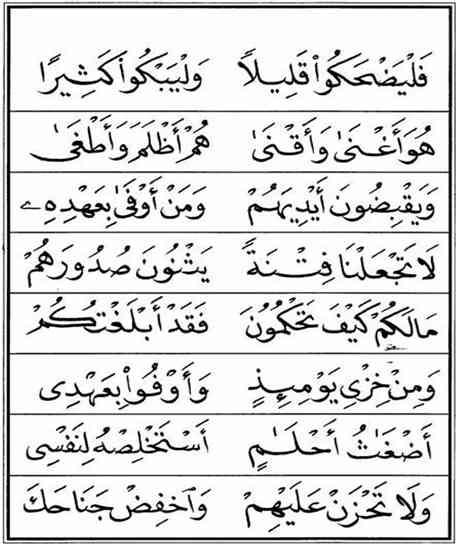 فَلْيَضْحَكُوا۟ قَلِيلًا وَلْيَبْكُوا۟ كَثِيرًا
هُوَ أَغْنَىٰ وَأَقْنَىٰ هُمْ أَظْلَمَ وَأَطْغَىٰ
وَيَقْبِضُونَ أَيْدِيَهُمْ وَمَنْ أَوْفَىٰ بِعَهْدِهِۦ
لَا تَجْعَلْنَا فِتْنَةً يَثْنُونَ صُدُورَهُمْ
مَالَكُمْ كَيْفَ تَحْكُمُونَ فَقَدْ أَبْلَغْتُكُمْ
وَمِنْ خِزْىِ يَوْمِئِذٍ وَأَوْفُوا۟ بِعَهْدِى
أَضْغَٰثُ أَحْلَٰمٍ أَسْتَخْلِصْهُ لِنَفْسِى
وَلَا تَحْزَنْ عَلَيْهِمْ وَٱخْفِضْ جَنَاحَكَ